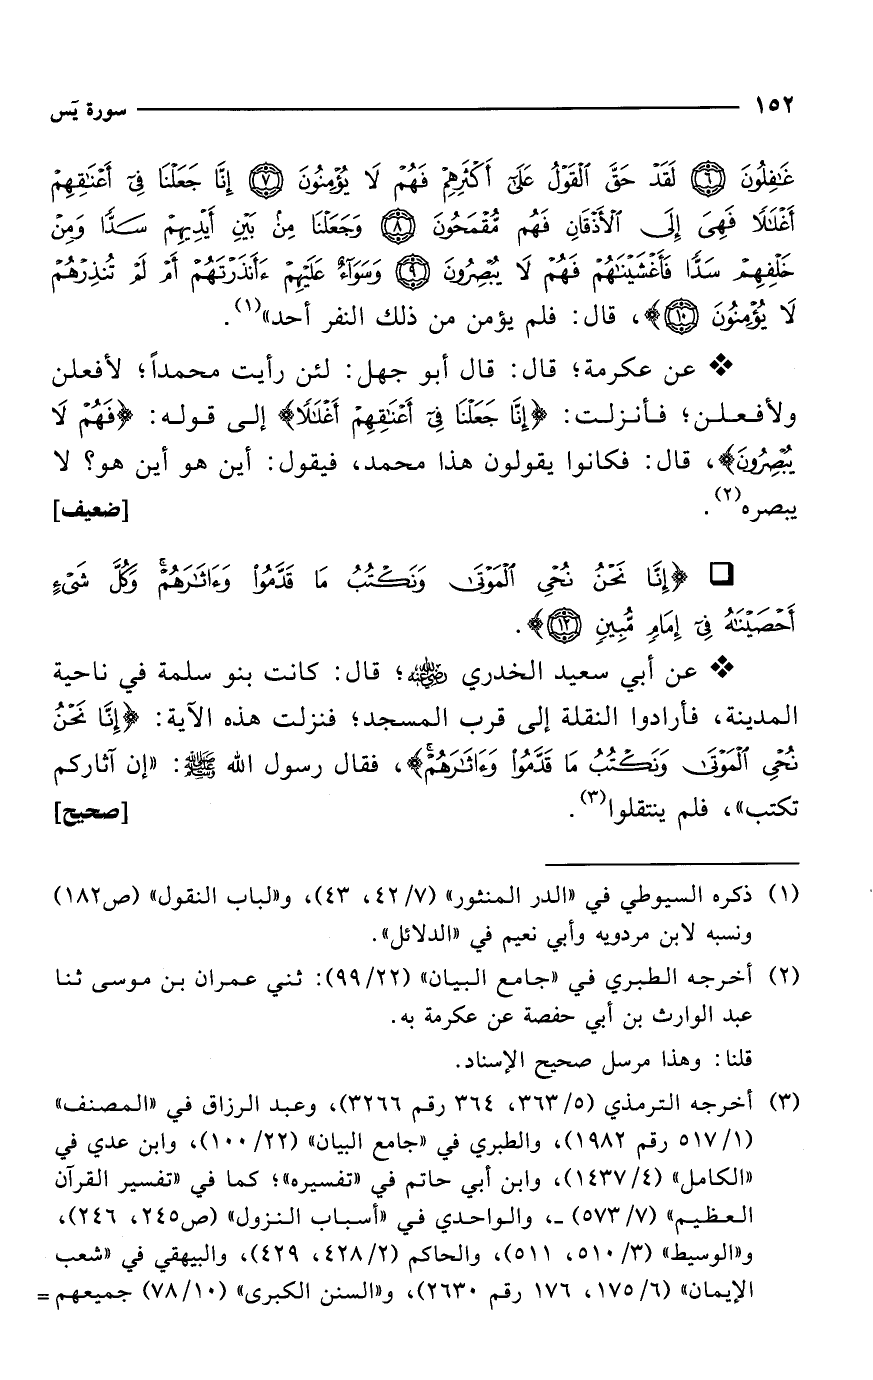 ١٥٢ سورة يَس
غَٰفِلُونَ ﴿٦﴾ لَقَدْ حَقَّ ٱلْقَوْلُ عَلَىٰٓ أَكْثَرِهِمْ فَهُمْ لَا يُؤْمِنُونَ ﴿٧﴾ إِنَّا جَعَلْنَا فِىٓ أَعْنَٰقِهِمْ
أَغْلَٰلًا فَهِىَ إِلَى ٱلْأَذْقَانِ فَهُم مُّقْمَحُونَ ﴿٨﴾ وَجَعَلْنَا مِنۢ بَيْنِ أَيْدِيهِمْ سَدًّا وَمِنْ
خَلْفِهِمْ سَدًّا فَأَغْشَيْنَٰهُمْ فَهُمْ لَا يُبْصِرُونَ ﴿٩﴾ وَسَوَآءٌ عَلَيْهِمْ ءَأَنذَرْتَهُمْ أَمْ لَمْ تُنذِرْهُمْ
لَا يُؤْمِنُونَ ﴿١٠﴾﴾، قال: فلم يؤمن من ذلك النفر أحد»(١).
❖ عن عكرمة؛ قال: قال أبو جهل: لئن رأيت محمداً؛ لأفعلن
ولأفعلن؛ فأنزلت: ﴿إِنَّا جَعَلْنَا فِىٓ أَعْنَٰقِهِمْ أَغْلَٰلًا﴾ إلى قوله: ﴿فَهُمْ لَا
يُبْصِرُونَ﴾، قال: فكانوا يقولون هذا محمد، فيقول: أين هو أين هو؟ لا
يبصره(٢). [ضعيف]
❑ ﴿إِنَّا نَحْنُ نُحْىِ ٱلْمَوْتَىٰ وَنَكْتُبُ مَا قَدَّمُوا۟ وَءَاثَٰرَهُمْ ۚ وَكُلَّ شَىْءٍ
أَحْصَيْنَٰهُ فِىٓ إِمَامٍ مُّبِينٍ ﴿١٢﴾﴾.
❖ عن أبي سعيد الخدري رضي الله عنه؛ قال: كانت بنو سلمة في ناحية
المدينة، فأرادوا النقلة إلى قرب المسجد؛ فنزلت هذه الآية: ﴿إِنَّا نَحْنُ
نُحْىِ ٱلْمَوْتَىٰ وَنَكْتُبُ مَا قَدَّمُوا۟ وَءَاثَٰرَهُمْ ۚ﴾، فقال رسول الله ﷺ: «إن آثاركم
تكتب»، فلم ينتقلوا(٣). [صحيح]
(١) ذكره السيوطي في «الدر المنثور» (٧/ ٤٢، ٤٣)، و«لباب النقول» (ص١٨٢)
ونسبه لابن مردويه وأبي نعيم في «الدلائل».
(٢) أخرجه الطبري في «جامع البيان» (٢٢/ ٩٩): ثني عمران بن موسى ثنا
عبد الوارث بن أبي حفصة عن عكرمة به.
قلنا: وهذا مرسل صحيح الإسناد.
(٣) أخرجه الترمذي (٥/ ٣٦٣، ٣٦٤ رقم ٣٢٦٦)، وعبد الرزاق في «المصنف»
(١/ ٥١٧ رقم ١٩٨٢)، والطبري في «جامع البيان» (٢٢/ ١٠٠)، وابن عدي في
«الكامل» (٤/ ١٤٣٧)، وابن أبي حاتم في «تفسيره»؛ كما في «تفسير القرآن
العظيم» (٧/ ٥٧٣) ـ، والواحدي في «أسباب النزول» (ص٢٤٥، ٢٤٦)،
و«الوسيط» (٣/ ٥١٠، ٥١١)، والحاكم (٢/ ٤٢٨، ٤٢٩)، والبيهقي في «شعب
الإيمان» (٦/ ١٧٥، ١٧٦ رقم ٢٦٣٠)، و«السنن الكبرى» (١٠/ ٧٨) جميعهم =